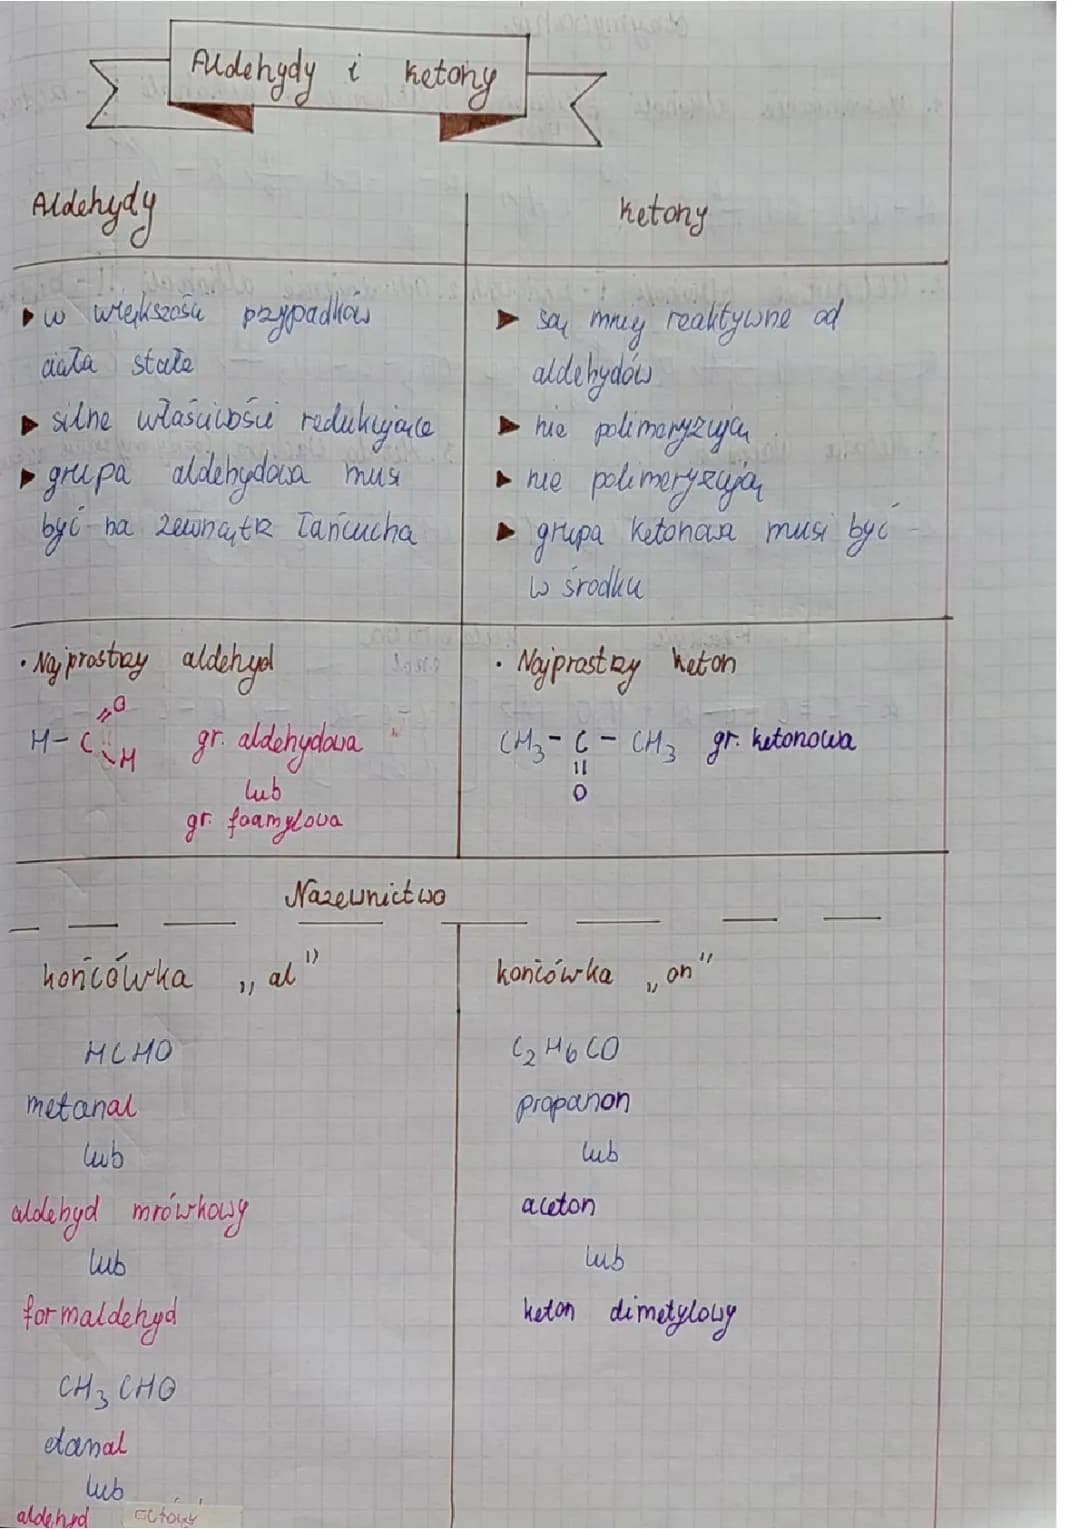 Aldehydy i ketony
Aldehydy
w większości przypadków
ciała stałe
silne właściwości redukujące
grupa aldehydowa musi
być na zewnątrz łańcucha
ketony
są mniej reaktywne od
aldehydów
nie polimeryzują
nie polimeryzują
grupa ketonowa musi być
w środku
• Najprostszy aldehyd
O
H - C gr. aldehydowa
H
lub
gr. formylowa
• Najprostszy keton
CH3 - C - CH3 gr. ketonowa
O
Nazewnictwo
końcówka „al"
HCHO
metanal
lub
aldehyd mrówkowy
lub
formaldehyd
CH3CHO
etanal
lub
aldehyd octowy
końcówka „on"
C2H6CO
propanon
lub
aceton
lub
keton dimetylowy